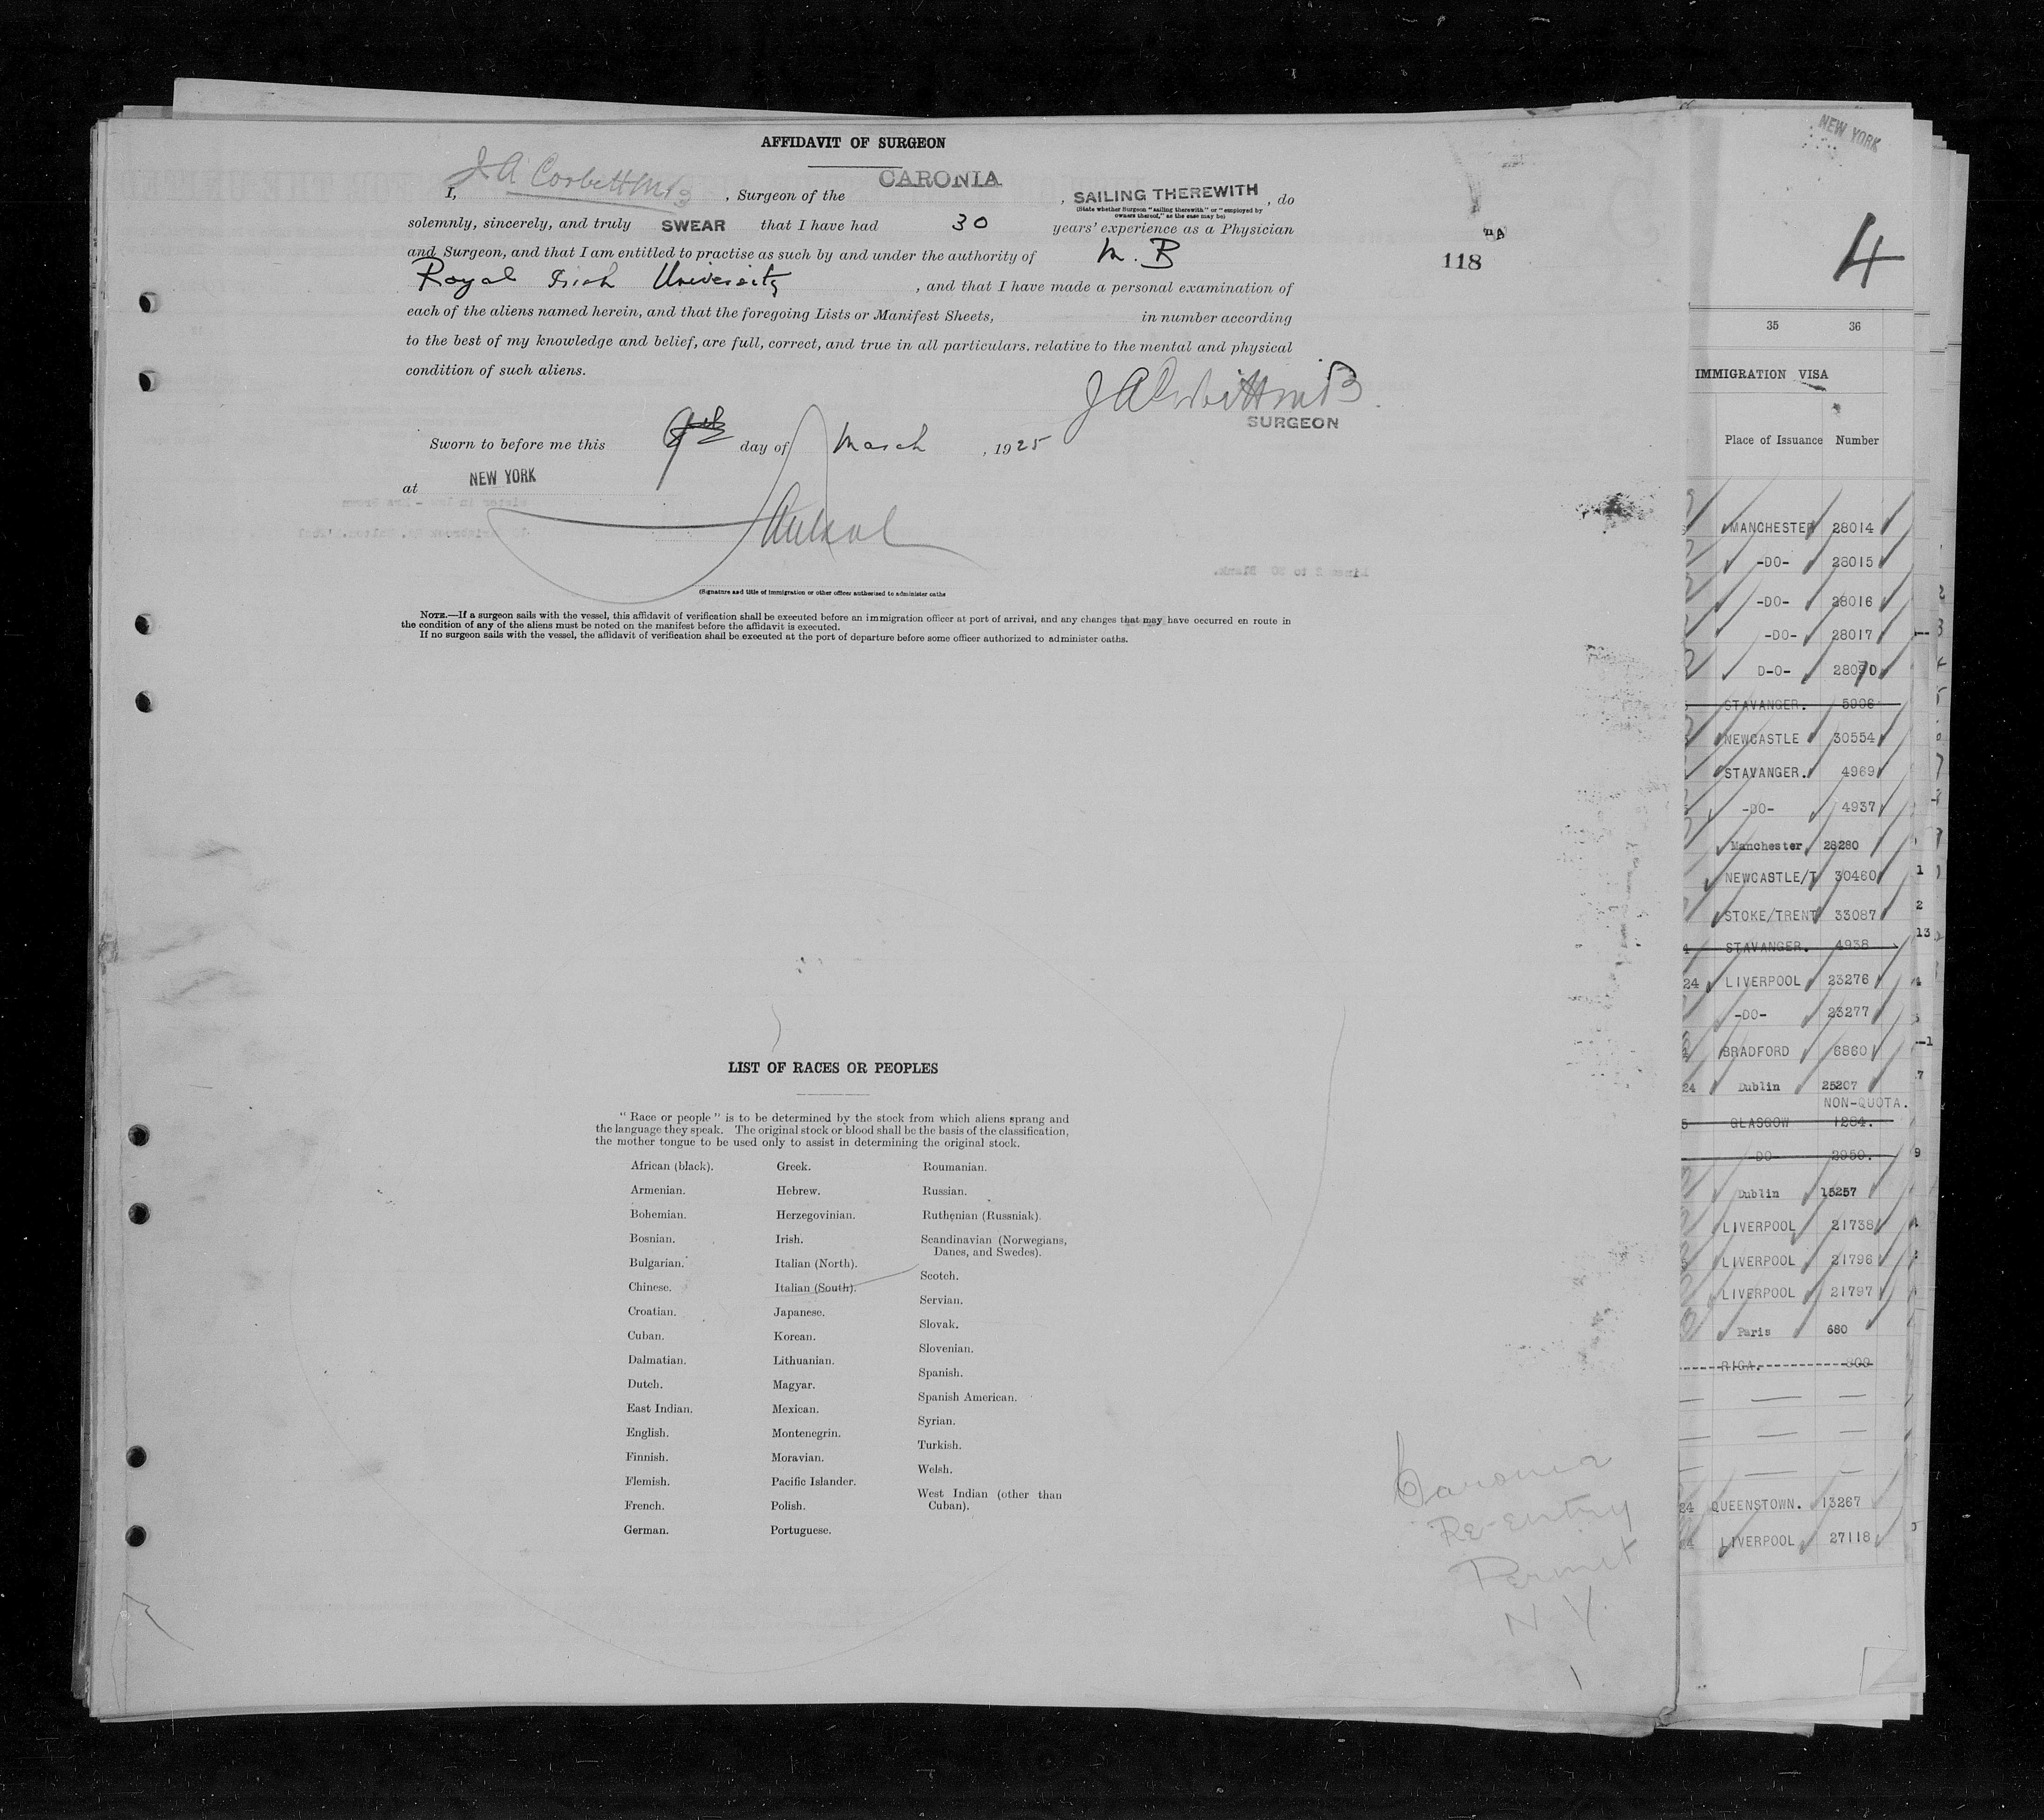 AFFIDAVIT OF SURGEON
I, J. A. Corbett M.B , Surgeon of the CARONIA , SAILING THEREWITH , do
(State whether Surgeon "sailing therewith" or "employed by
owners thereof," as the case may be)
solemnly, sincerely, and truly SWEAR that I have had 30 years' experience as a Physician
and Surgeon, and that I am entitled to practise as such by and under the authority of M.B
118
Royal Irish University , and that I have made a personal examination of
each of the aliens named herein, and that the foregoing Lists or Manifest Sheets, in number according
to the best of my knowledge and belief, are full, correct, and true in all particulars, relative to the mental and physical
condition of such aliens.
J A Corbett M B
SURGEON
Sworn to before me this 9th day of March , 1925
at NEW YORK
(Signature and title of immigration or other officer authorized to administer oaths
NOTE.—If a surgeon sails with the vessel, this affidavit of verification shall be executed before an immigration officer at port of arrival, and any changes that may have occurred en route in
the condition of any of the aliens must be noted on the manifest before the affidavit is executed.
If no surgeon sails with the vessel, the affidavit of verification shall be executed at the port of departure before some officer authorized to administer oaths.
LIST OF RACES OR PEOPLES
"Race or people" is to be determined by the stock from which aliens sprang and
the language they speak. The original stock or blood shall be the basis of the classification,
the mother tongue to be used only to assist in determining the original stock.
African (black).
Armenian.
Bohemian.
Bosnian.
Bulgarian.
Chinese.
Croatian.
Cuban.
Dalmatian.
Dutch.
East Indian.
English.
Finnish.
Flemish.
French.
German.
Greek.
Hebrew.
Herzegovinian.
Irish.
Italian (North).
Italian (South).
Japanese.
Korean.
Lithuanian.
Magyar.
Mexican.
Montenegrin.
Moravian.
Pacific Islander.
Polish.
Portuguese.
Roumanian.
Russian.
Ruthenian (Russniak).
Scandinavian (Norwegians,
Danes, and Swedes).
Scotch.
Servian.
Slovak.
Slovenian.
Spanish.
Spanish American.
Syrian.
Turkish.
Welsh.
West Indian (other than
Cuban).
Caronia
Re-entry
Permit
N Y.
NEW YORK
4
35 36
IMMIGRATION VISA
Place of Issuance Number
MANCHESTER 28014
-DO- 28015
-DO- 28016
-DO- 28017
D-O- 28070
STAVANGER. 5906
NEWCASTLE 30554
STAVANGER. 4969
-DO- 4937
Manchester 28280
NEWCASTLE/T 30460
STOKE/TRENT 33087
STAVANGER. 4938
24 LIVERPOOL 23276
-DO- 23277
BRADFORD 6860
24 Dublin 25207
NON-QUOTA.
GLASGOW 1284.
DO 2950.
Dublin 15257
LIVERPOOL 21738
LIVERPOOL 21796
LIVERPOOL 21797
Paris 680
RIGA.
24 QUEENSTOWN. 13267
LIVERPOOL 27118